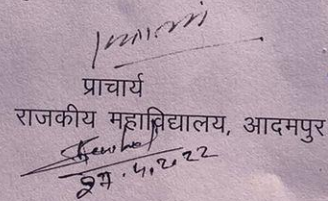 प्राचार्य
राजकीय महाविद्यालय, आदमपुर
27.4.2022